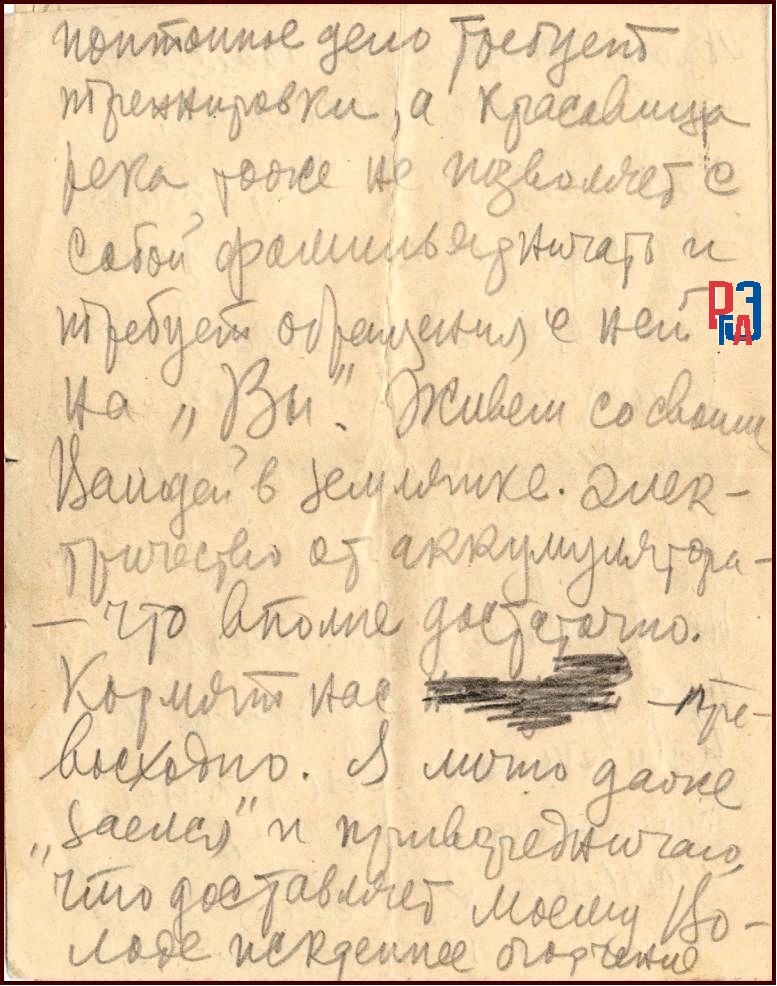 понтонное дело требует
тренировки, а красавица
река тоже не позволяет с
собой фамильярничать и
требует обращения с ней
РГАЭ
на „Вы“. Живем со своим
в землянке. Элек-
тричество от аккумулятора-
— что вполне достаточно.
Кормят нас — пре-
восходно. Я лично даже
„заелся“ и привередничаю,
что доставляет моему Во-
лоде искреннее огорчение